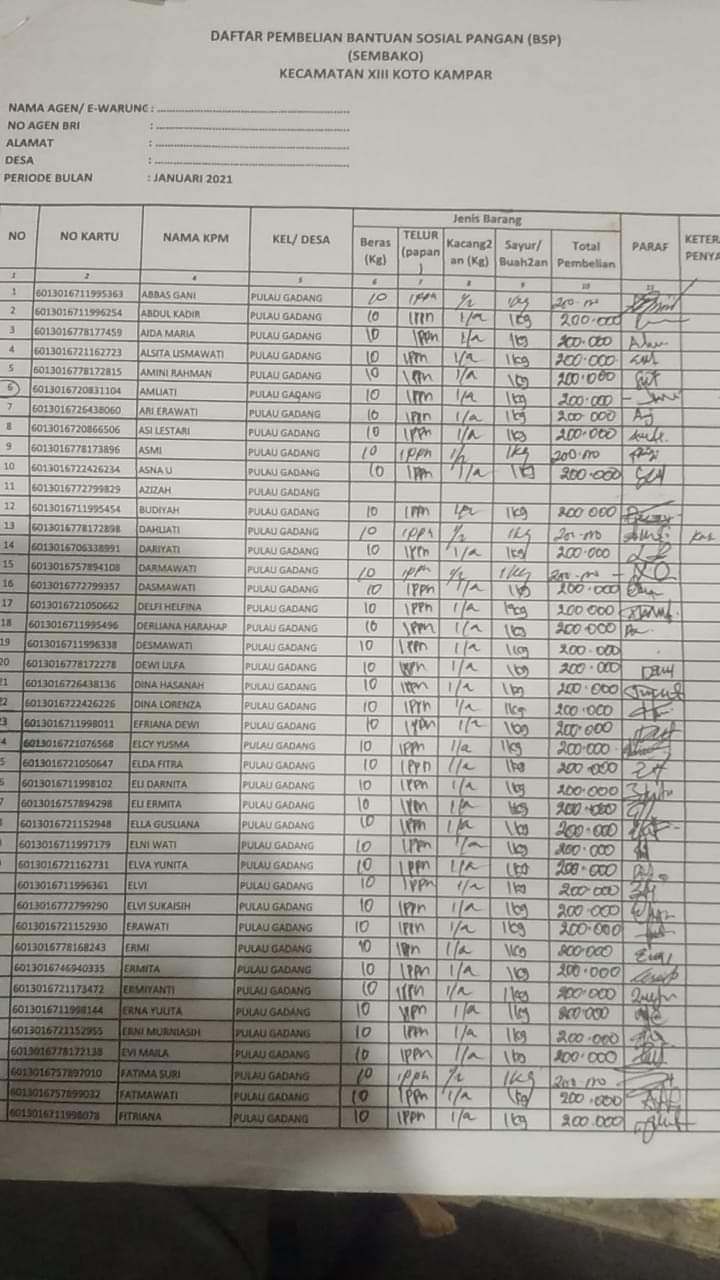 DAFTAR PEMBELIAN BANTUAN SOSIAL PANGAN (BSP)
(SEMBAKO)
KECAMATAN XIII KOTO KAMPAR
NAMA AGEN/ E-WARUNG : ...............
NO AGEN BRI : ...............
ALAMAT : ...............
DESA : ...............
PERIODE BULAN : JANUARI 2021
NO NO KARTU NAMA KPM KEL/ DESA Jenis Barang PARAF KETERA PENYA
Beras (Kg) TELUR (papan) Kacang2an (Kg) Sayur/ Buah2an Total Pembelian
1 2 4 5 6 7 8 9 10 11
1 6013016711995363 ABBAS GANI PULAU GADANG 10 1ppn 1/2 1kg 200.000
2 6013016711996254 ABDUL KADIR PULAU GADANG 10 1ppn 1/2 1kg 200.000
3 6013016778177459 AIDA MARIA PULAU GADANG 10 1ppn 1/2 1kg 200.000
4 6013016721162723 ALSITA LISMAWATI PULAU GADANG 10 1ppn 1/2 1kg 200.000
5 6013016778172815 AMINI RAHMAN PULAU GADANG 10 1ppn 1/2 1kg 200.000
6 6013016720831104 AMLIATI PULAU GADANG 10 1ppn 1/2 1kg 200.000
7 6013016726438060 ARI ERAWATI PULAU GADANG 10 1ppn 1/2 1kg 200.000
8 6013016720866506 ASI LESTARI PULAU GADANG 10 1ppn 1/2 1kg 200.000
9 6013016778173896 ASMI PULAU GADANG 10 1ppn 1/2 1kg 200.000
10 6013016722426234 ASNA U PULAU GADANG 10 1ppn 1/2 1kg 200.000
11 6013016772799829 AZIZAH PULAU GADANG
12 6013016711995454 BUDIYAH PULAU GADANG 10 1ppn 1/2 1kg 200.000
13 6013016778172898 DAHLIATI PULAU GADANG 10 1ppn 1/2 1kg 200.000
14 6013016706338991 DARIYATI PULAU GADANG 10 1ppn 1/2 1kg 200.000
15 6013016757894108 DARMAWATI PULAU GADANG 10 1ppn 1/2 1kg 200.000
16 6013016772799357 DASMAWATI PULAU GADANG 10 1ppn 1/2 1kg 200.000
17 6013016721050662 DELFI HELFINA PULAU GADANG 10 1ppn 1/2 1kg 200.000
18 6013016711995496 DERLIANA HARAHAP PULAU GADANG 10 1ppn 1/2 1kg 200.000
19 6013016711996338 DESMAWATI PULAU GADANG 10 1ppn 1/2 1kg 200.000
20 6013016778172278 DEWI ULFA PULAU GADANG 10 1ppn 1/2 1kg 200.000
21 6013016726438136 DINA HASANAH PULAU GADANG 10 1ppn 1/2 1kg 200.000
22 6013016722426226 DINA LORENZA PULAU GADANG 10 1ppn 1/2 1kg 200.000
23 6013016711998011 EFRIANA DEWI PULAU GADANG 10 1ppn 1/2 1kg 200.000
4 6013016721076568 ELCY YUSMA PULAU GADANG 10 1ppn 1/2 1kg 200.000
5 6013016721050647 ELDA FITRA PULAU GADANG 10 1ppn 1/2 1kg 200.000
6013016711998102 ELI DARNITA PULAU GADANG 10 1ppn 1/2 1kg 200.000
6013016757894298 ELI ERMITA PULAU GADANG 10 1ppn 1/2 1kg 200.000
6013016721152948 ELLA GUSLIANA PULAU GADANG 10 1ppn 1/2 1kg 200.000
6013016711997179 ELNI WATI PULAU GADANG 10 1ppn 1/2 1kg 200.000
6013016721162731 ELVA YUNITA PULAU GADANG 10 1ppn 1/2 1kg 200.000
6013016711996361 ELVI PULAU GADANG 10 1ppn 1/2 1kg 200.000
6013016772799290 ELVI SUKAISIH PULAU GADANG 10 1ppn 1/2 1kg 200.000
6013016721152930 ERAWATI PULAU GADANG 10 1ppn 1/2 1kg 200.000
6013016778168243 ERMI PULAU GADANG 10 1ppn 1/2 1kg 200.000
6013016746940335 ERMITA PULAU GADANG 10 1ppn 1/2 1kg 200.000
6013016721173472 ERMIYANTI PULAU GADANG 10 1ppn 1/2 1kg 200.000
6013016711998144 ERNA YULITA PULAU GADANG 10 1ppn 1/2 1kg 200.000
6013016721152955 ERNI MURNIASIH PULAU GADANG 10 1ppn 1/2 1kg 200.000
6013016778172138 EVI MAILA PULAU GADANG 10 1ppn 1/2 1kg 200.000
6013016757897010 FATIMA SURI PULAU GADANG 10 1ppn 1/2 1kg 200.000
6013016757899032 FATMAWATI PULAU GADANG 10 1ppn 1/2 1kg 200.000
6013016711998078 FITRIANA PULAU GADANG 10 1ppn 1/2 1kg 200.000